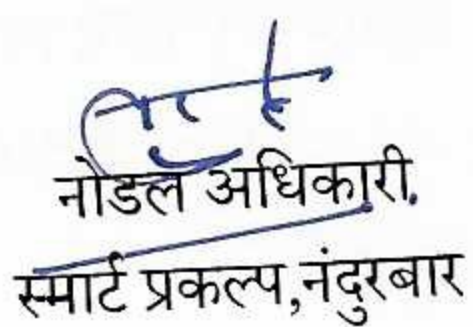 नोडल अधिकारी.
स्मार्ट प्रकल्प,नंदुरबार